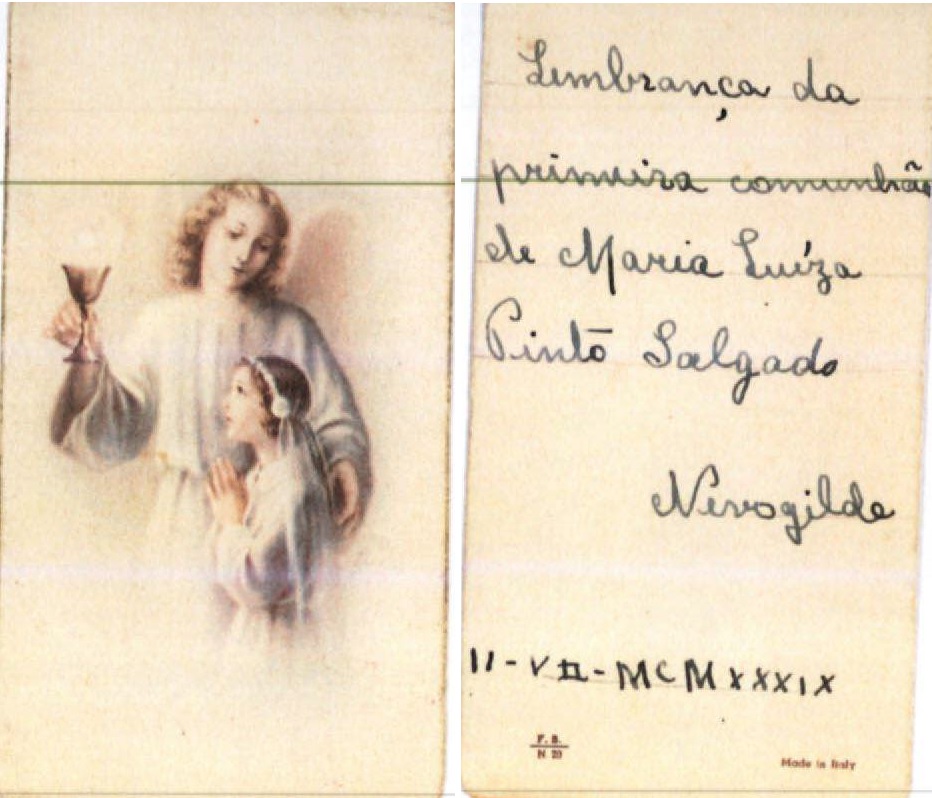 Lembrança da
primeira comunhão
de Maria Luíza
Pinto Salgado
Nevogilde
II-VII-MCMXXXIX
F. B.
N 20
Made in Italy